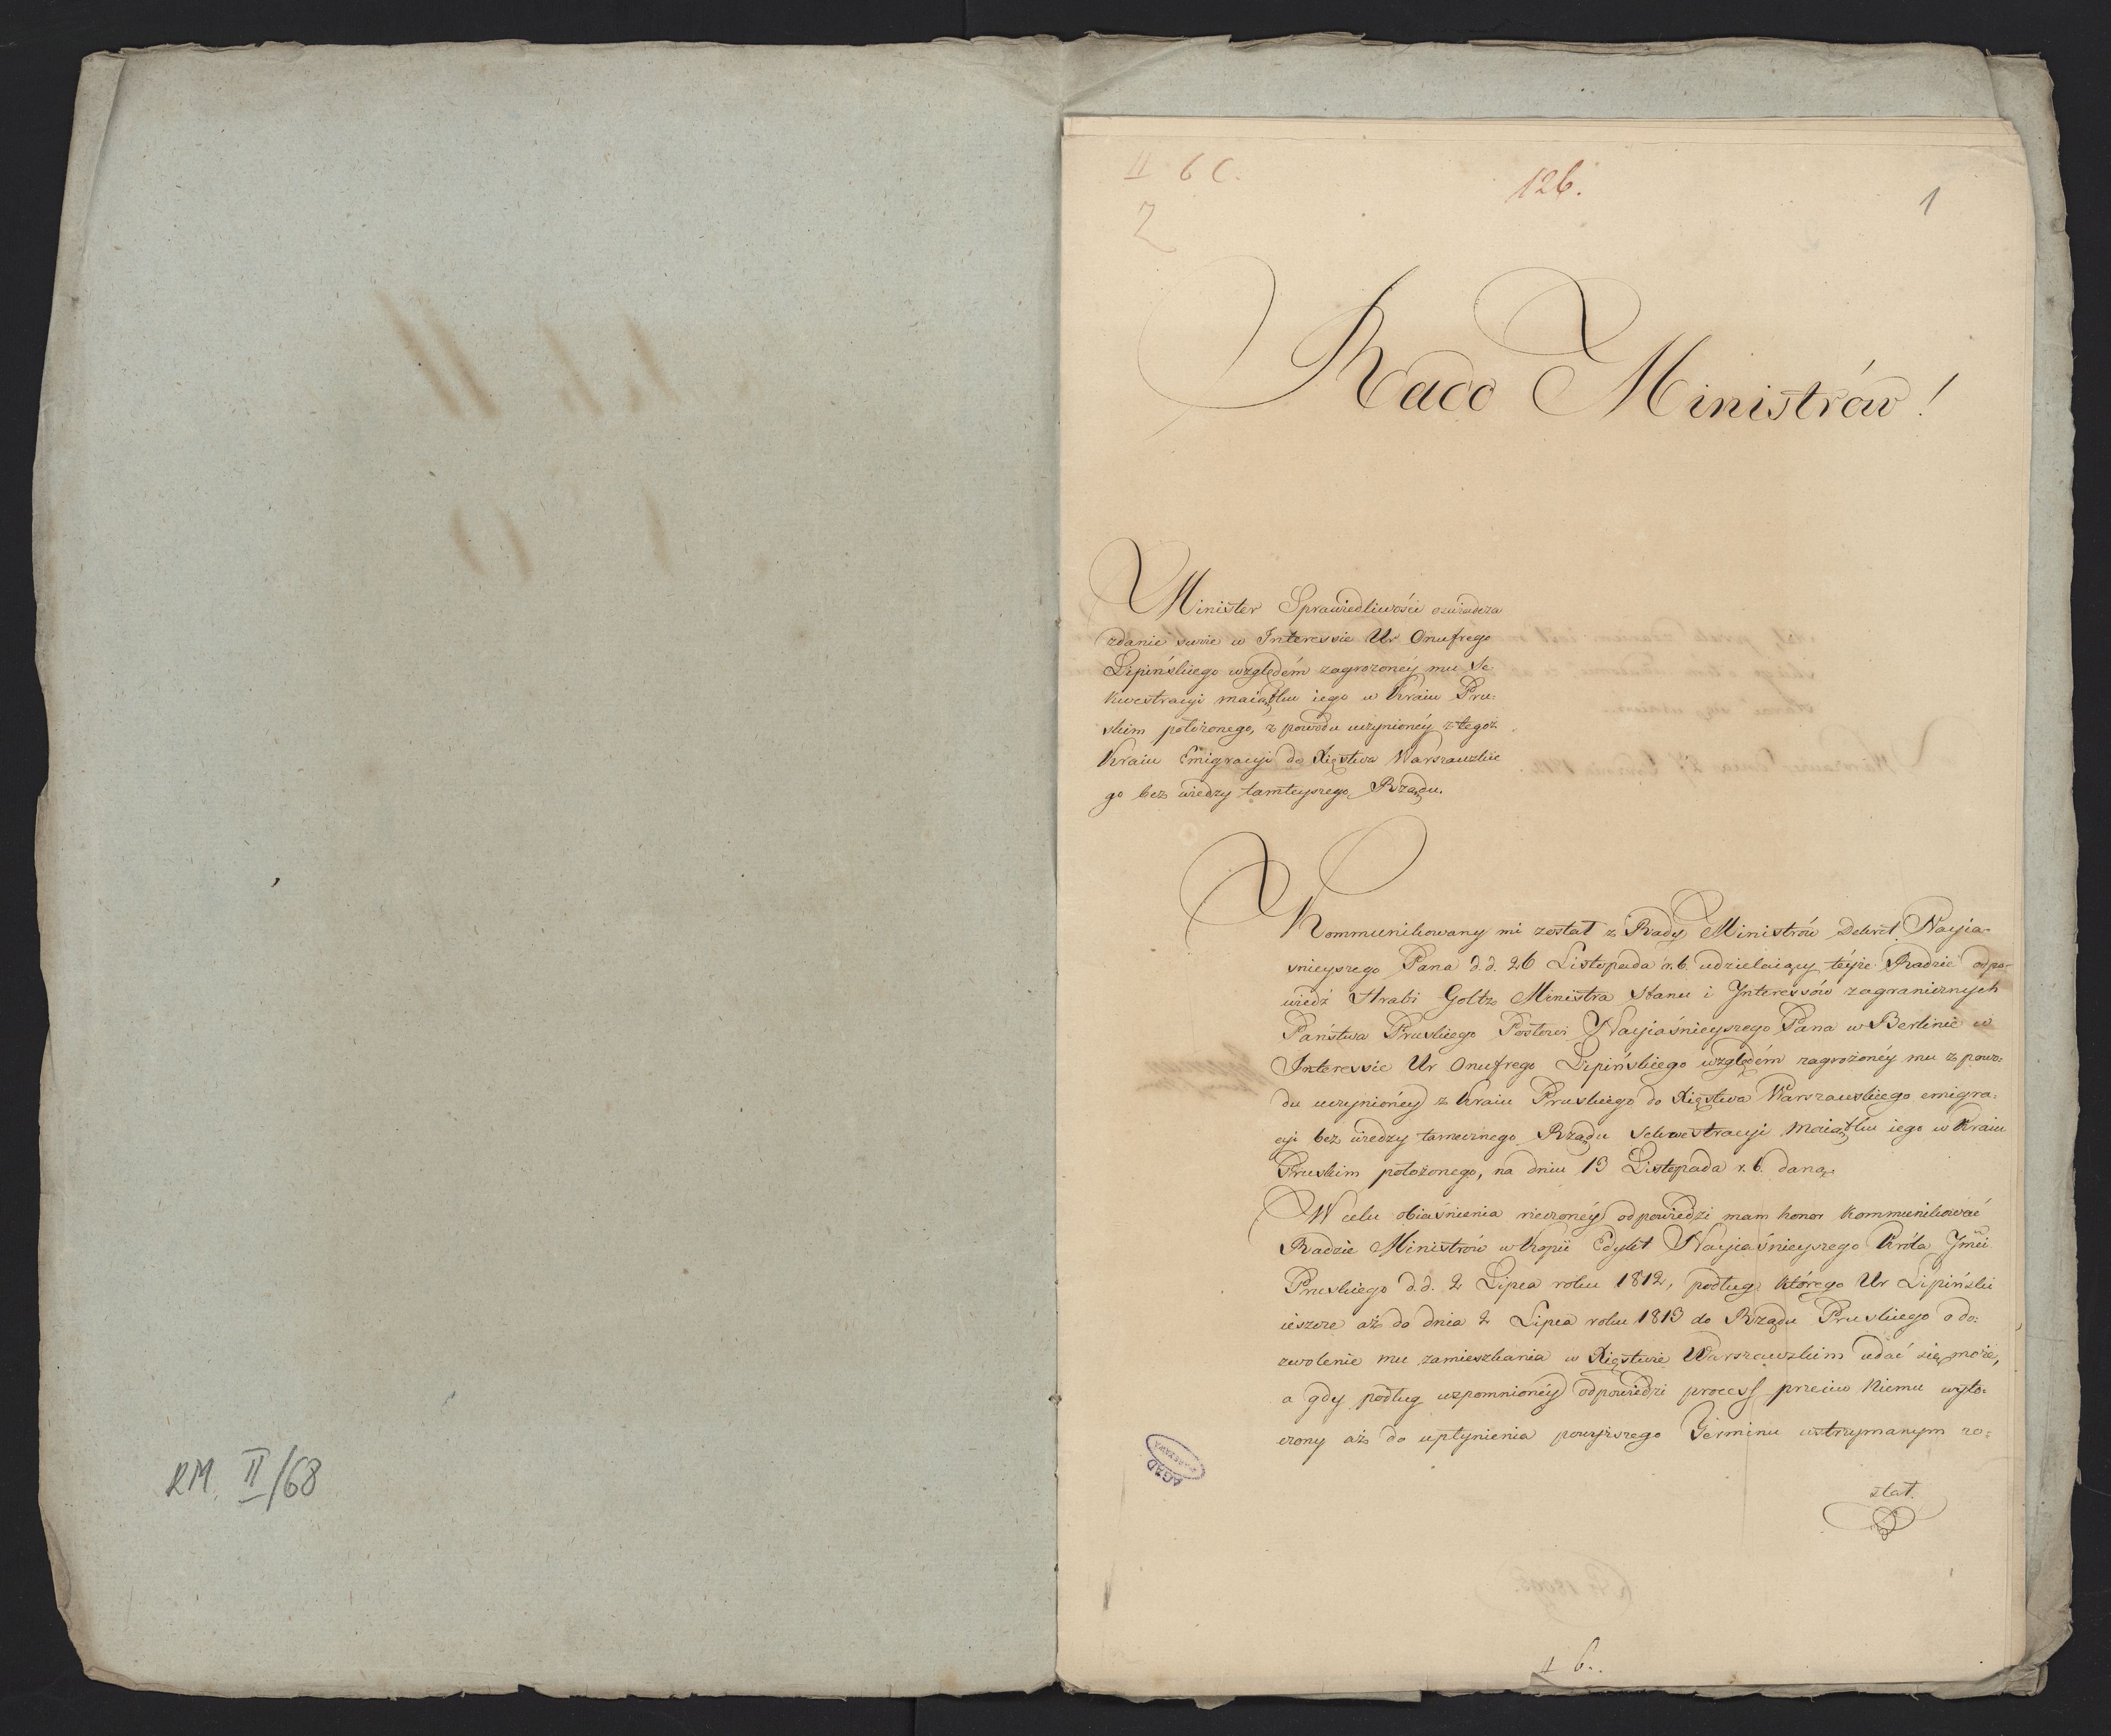 RM. II/68
II 6 C.
126.
1
2
Rado Ministrów!
Minister Sprawiedliwości oświadcza
zdanie swoie w Interessie Ur Onufrego
Lipińskiego względem zagrożoney mu Se
kwestracyi maiątku iego w Kraiu Pru-
skim położonego, z powodu uczynioney z tegoż
Kraiu Emigracyi do Xięstwa Warszawskie
go bez wiedzy tamteyszego Rządu.
Kommunikowany mi został z Rady Ministrów Dekret Nayia-
snieyszego Pana d.d. 26 Listopada r.b. udzielaiący teyże Radzie odpo-
wiedź Hrabi Goltz Ministra Stanu i Interessów zagranicznych
Państwa Pruskiego Posłowi Nayiaśnieyszego Pana w Berlinie w
Interessie Ur Onufrego Lipińskiego względem zagrożoney mu z powo-
du uczynioney z Kraiu Pruskiego do Xięstwa Warszawskiego emigra-
cyi bez wiedzy tamecznego Rządu Sekwestracyi Maiątku iego w Kraiu
Pruskim położonego, na dniu 13 Listopada r.b. daną.
W celu obiaśnienia rzeczoney odpowiedzi mam honor kommunikować
Radzie Ministrów w kopii Edykt Nayiaśnieyszego Króla Jmci
Pruskiego d.d. 2 Lipca roku 1812, podług którego Ur Lipiński
ieszcze aż do dnia 2 Lipca roku 1813 do Rządu Pruskiego o do-
zwolenie mu zamieszkania w Xięstwie Warszawskim udać się może,
a gdy podług wzpomnioney odpowiedzi process przeciw Niemu wyto-
czony aż do upłynienia powyższego Terminu wstrzymanym zo-
stał.
AGAD
WARSZAWA
II 6.